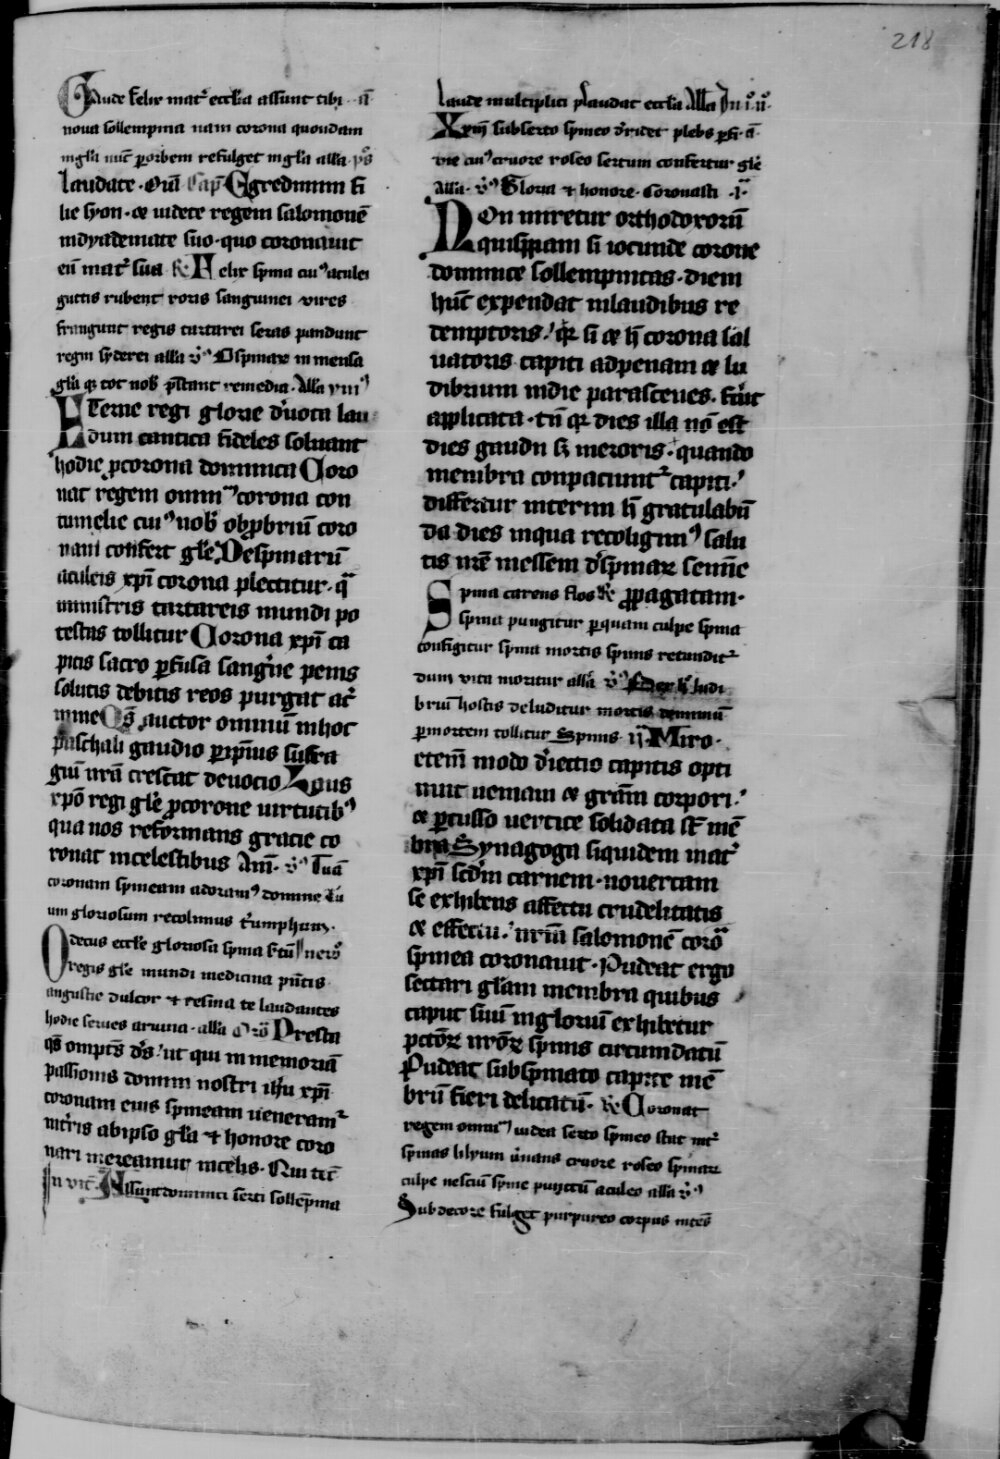 218
Gaude felix mat͛ eccl̄ia assunt tibi · a᷒
noua sollempnia nam corona quondam
ingl̄ia nūc ꝑ orbem refulget ingl̄ia alla · p̄s
laudate · Om̄ Cap̄ Egredimini fi
lie syon · ⁊ uidete regem salomonē
indyademate suo · quo coronauit
eū mat͛ sua ꝶ Felix spina cuiꝰ aculei
guttis rubent roris sanguinei vires
frangunt regis tartarei seras pandunt
regni syderei alla v̄ O spinaꝝ inmensa
gl̄ia q̄ tot nob̄ p̄stant remedia · Alla ymꝰ
Eterne regi glorie d̓uota lau
dum cantica fideles soluant
hodie ꝓ corona dominica Coro
nat regem omniū corona con
tumelie cuiꝰ nob̄ obꝓbriū coro
nam confert gl̄ie De spinarū
aculeis xp̄i corona plectitur · q̄
ministris tartareis mundi po
testas tollitur Corona xp̄i ca
pitis sacro ꝑfusa sang̓ne penis
solutis debitis reos purgat ac͛
mine Q̄s auctor omniū inhoc
paschali gaudio ꝑ ip̄ius suffra
giū nr̄a crescat deuocio Laus
xp̄o regi gl̄ie ꝓ corone uirtutibꝰ
qua nos reformans gracie co
ronat incelestibus Am̄ · v̄ Tuā
coronam spineam adoramꝰ domine tu
um gloriosum recolimus t̓umphum ·
O decus eccl̄ie gloriosa spina
regis gl̄ie mundi medicina
angustie dulcor ⁊ resina te laudantes
hodie serues aruina · alla Orō Presta
q̄s omp̄s d̄s ut qui in memoriā
passionis domini nostri ihū xp̄i
coronam eius spineam ueneram͛
int̓ris ab ipso gl̄ia ⁊ honore coro
nari mereamur incelis · Qui tec̄
In vit̄ · Assunt dominici serti sollēpnia
laude multiplici plaudat eccl̄ia Alla In i᷒ n᷒ ·
Xp̄m sub serto spineo d̓ridet plebs ꝑfi · a᷒
die cuiꝰ cruore roseo sertum confertur gl̄ie
alla · v̄ Gloria ⁊ honore · Coronasti · i᷒ ·
Non miretur orthodoxorū
quispiam si iocunde corone
dominice sollempnitas · diem
hūc expendat inlaudibus re
demptoris · q̄ si ⁊ h̄ corona sal
uatoris capiti ad penam ⁊ lu
dibrium indie parasceues · fu̓it
applicata · tn̄ q̄ dies illa nō est
dies gaudii s̄ meroris · quando
membra conpaciunt͛ capiti ·
differtur interim h̄ gratulabū
da dies inqua recoligimꝰ salu
tis nr̄e messem d̓ spinaꝝ semīe
Spina carens flos ꝶ ꝓpagatam ·
spina pungitur ꝑ quam culpe spina
configitur spina mortis spinis retundit͛
dum vita moritur alla v̄ ludi
briū hostis deluditur mortis
ꝑ mortem tollitur Spinis · ij᷒ Miro ·
etem̄ modo d̓iectio capitis opti
nuit ueniam ⁊ gr̄am corpori ·
⁊ ꝑcusso uertice solidata st̄ mē
bra Synagoga siquidem mat͛
xp̄i sc̄dm carnem · nouercam
se exhibens affectu crudelitatis
⁊ effectu · nr̄m salomonē corō
spinea coronauit · Pudeat ergo
sectari gl̄iam membra quibus
caput suū inglorīū exhibetur
pctōꝝ nr̄oꝝ spinis circumdatū
Pudeat sub spinato capite mē
brū fieri delicatū · ꝶ Coronat
regem omniꝰ iudea serto spineo stat int͛
spinas lilyum u̓nans cruore roseo spinaꝝ
culpe nesciū spine punctū aculeo alla v̄
Sub decore fulget purpureo corpus